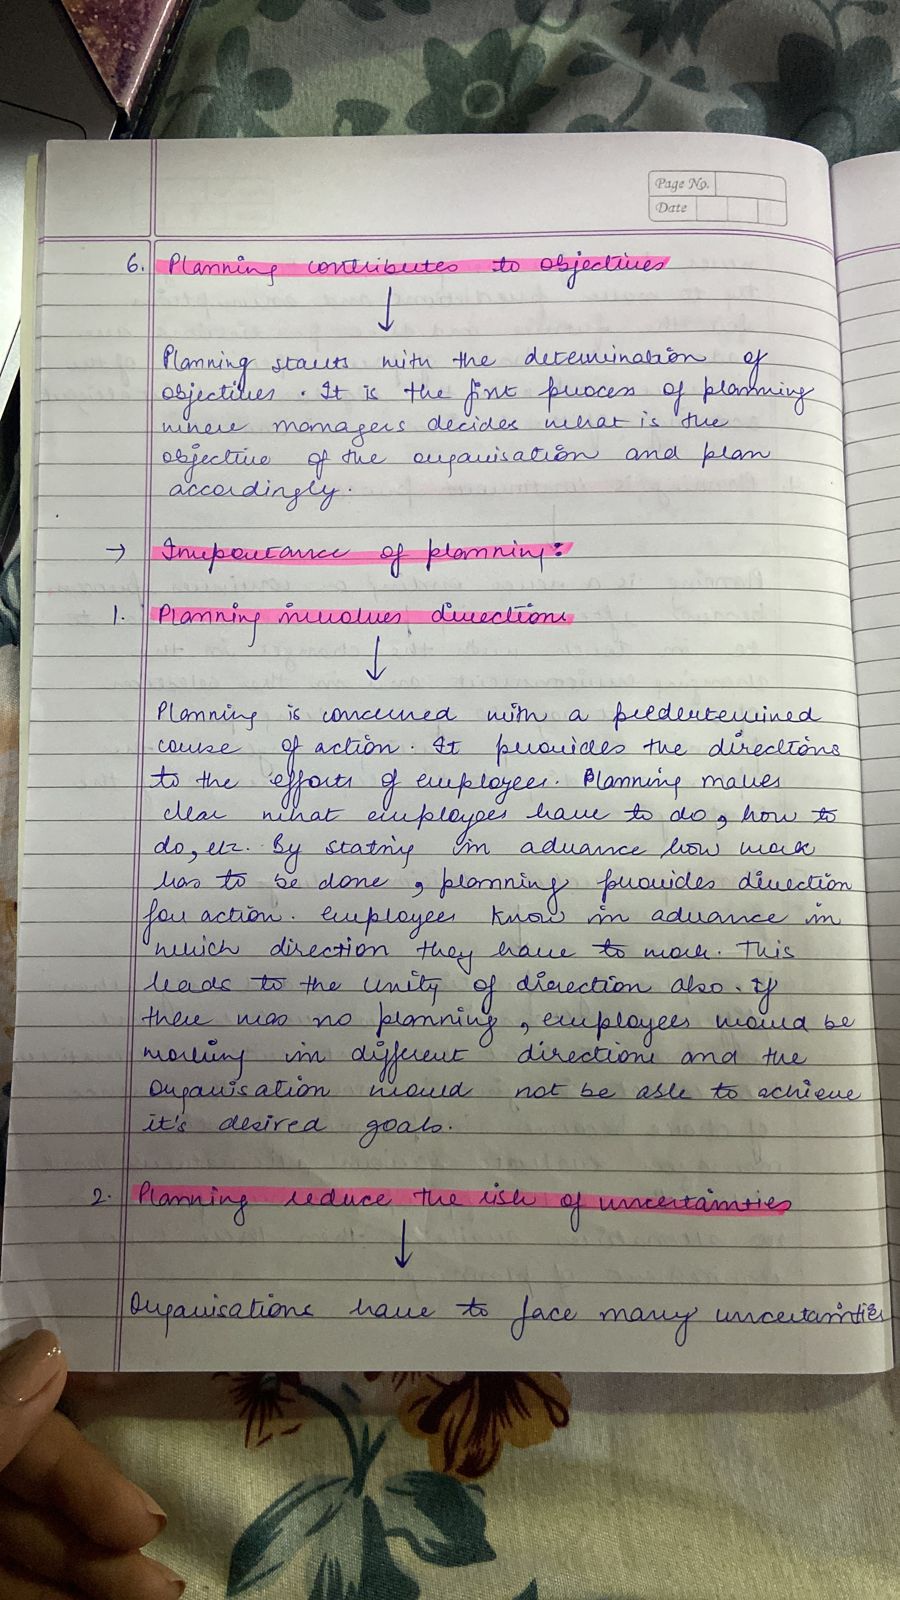 Page No.
Date
6. Planning contributes to objectives
↓
Planning starts with the determination of
objectives. It is the first process of planning
where managers decides what is the
objective of the organisation and plan
accordingly.
→ Importance of planning:
1. Planning involves directions
↓
Planning is concerned with a predertemined
course of action. It provides the directions
to the efforts of employees. Planning makes
clear what employees have to do, how to
do, etc. By stating in advance how work
has to be done, planning provides direction
for action. employees know in advance in
which direction they have to work. This
leads to the unity of direction also. If
there was no planning, employees would be
working in different directions and the
organisation would not be able to achieve
it's desired goals.
2. Planning reduce the risk of uncertainties
↓
Organisations have to face many uncertainties